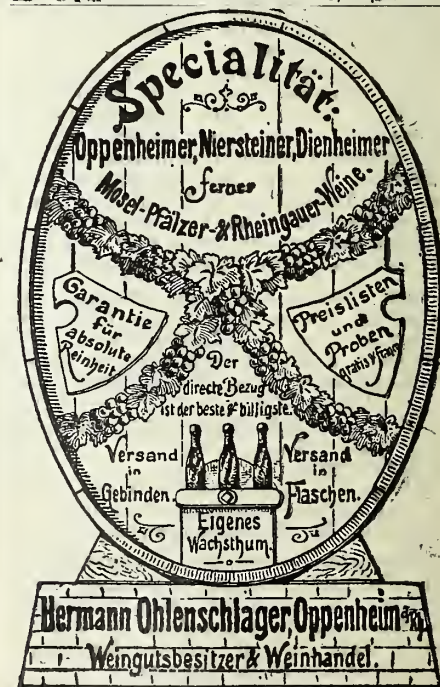 Specialität:
Oppenheimer, Niersteiner, Dienheimer
ferner
Mosel-Pfälzer- & Rheingauer-Weine.
Garantie
für
absolute
Reinheit
Preislisten
und
Proben
gratis & franco
Der
directe Bezug
ist der beste & billigste.
Versand
in
Gebinden.
Versand
in
Flaschen.
Eigenes
Wachsthum.
Hermann Ohlenschlager, Oppenheim a/Rh.
Weingutsbesitzer & Weinhandel.